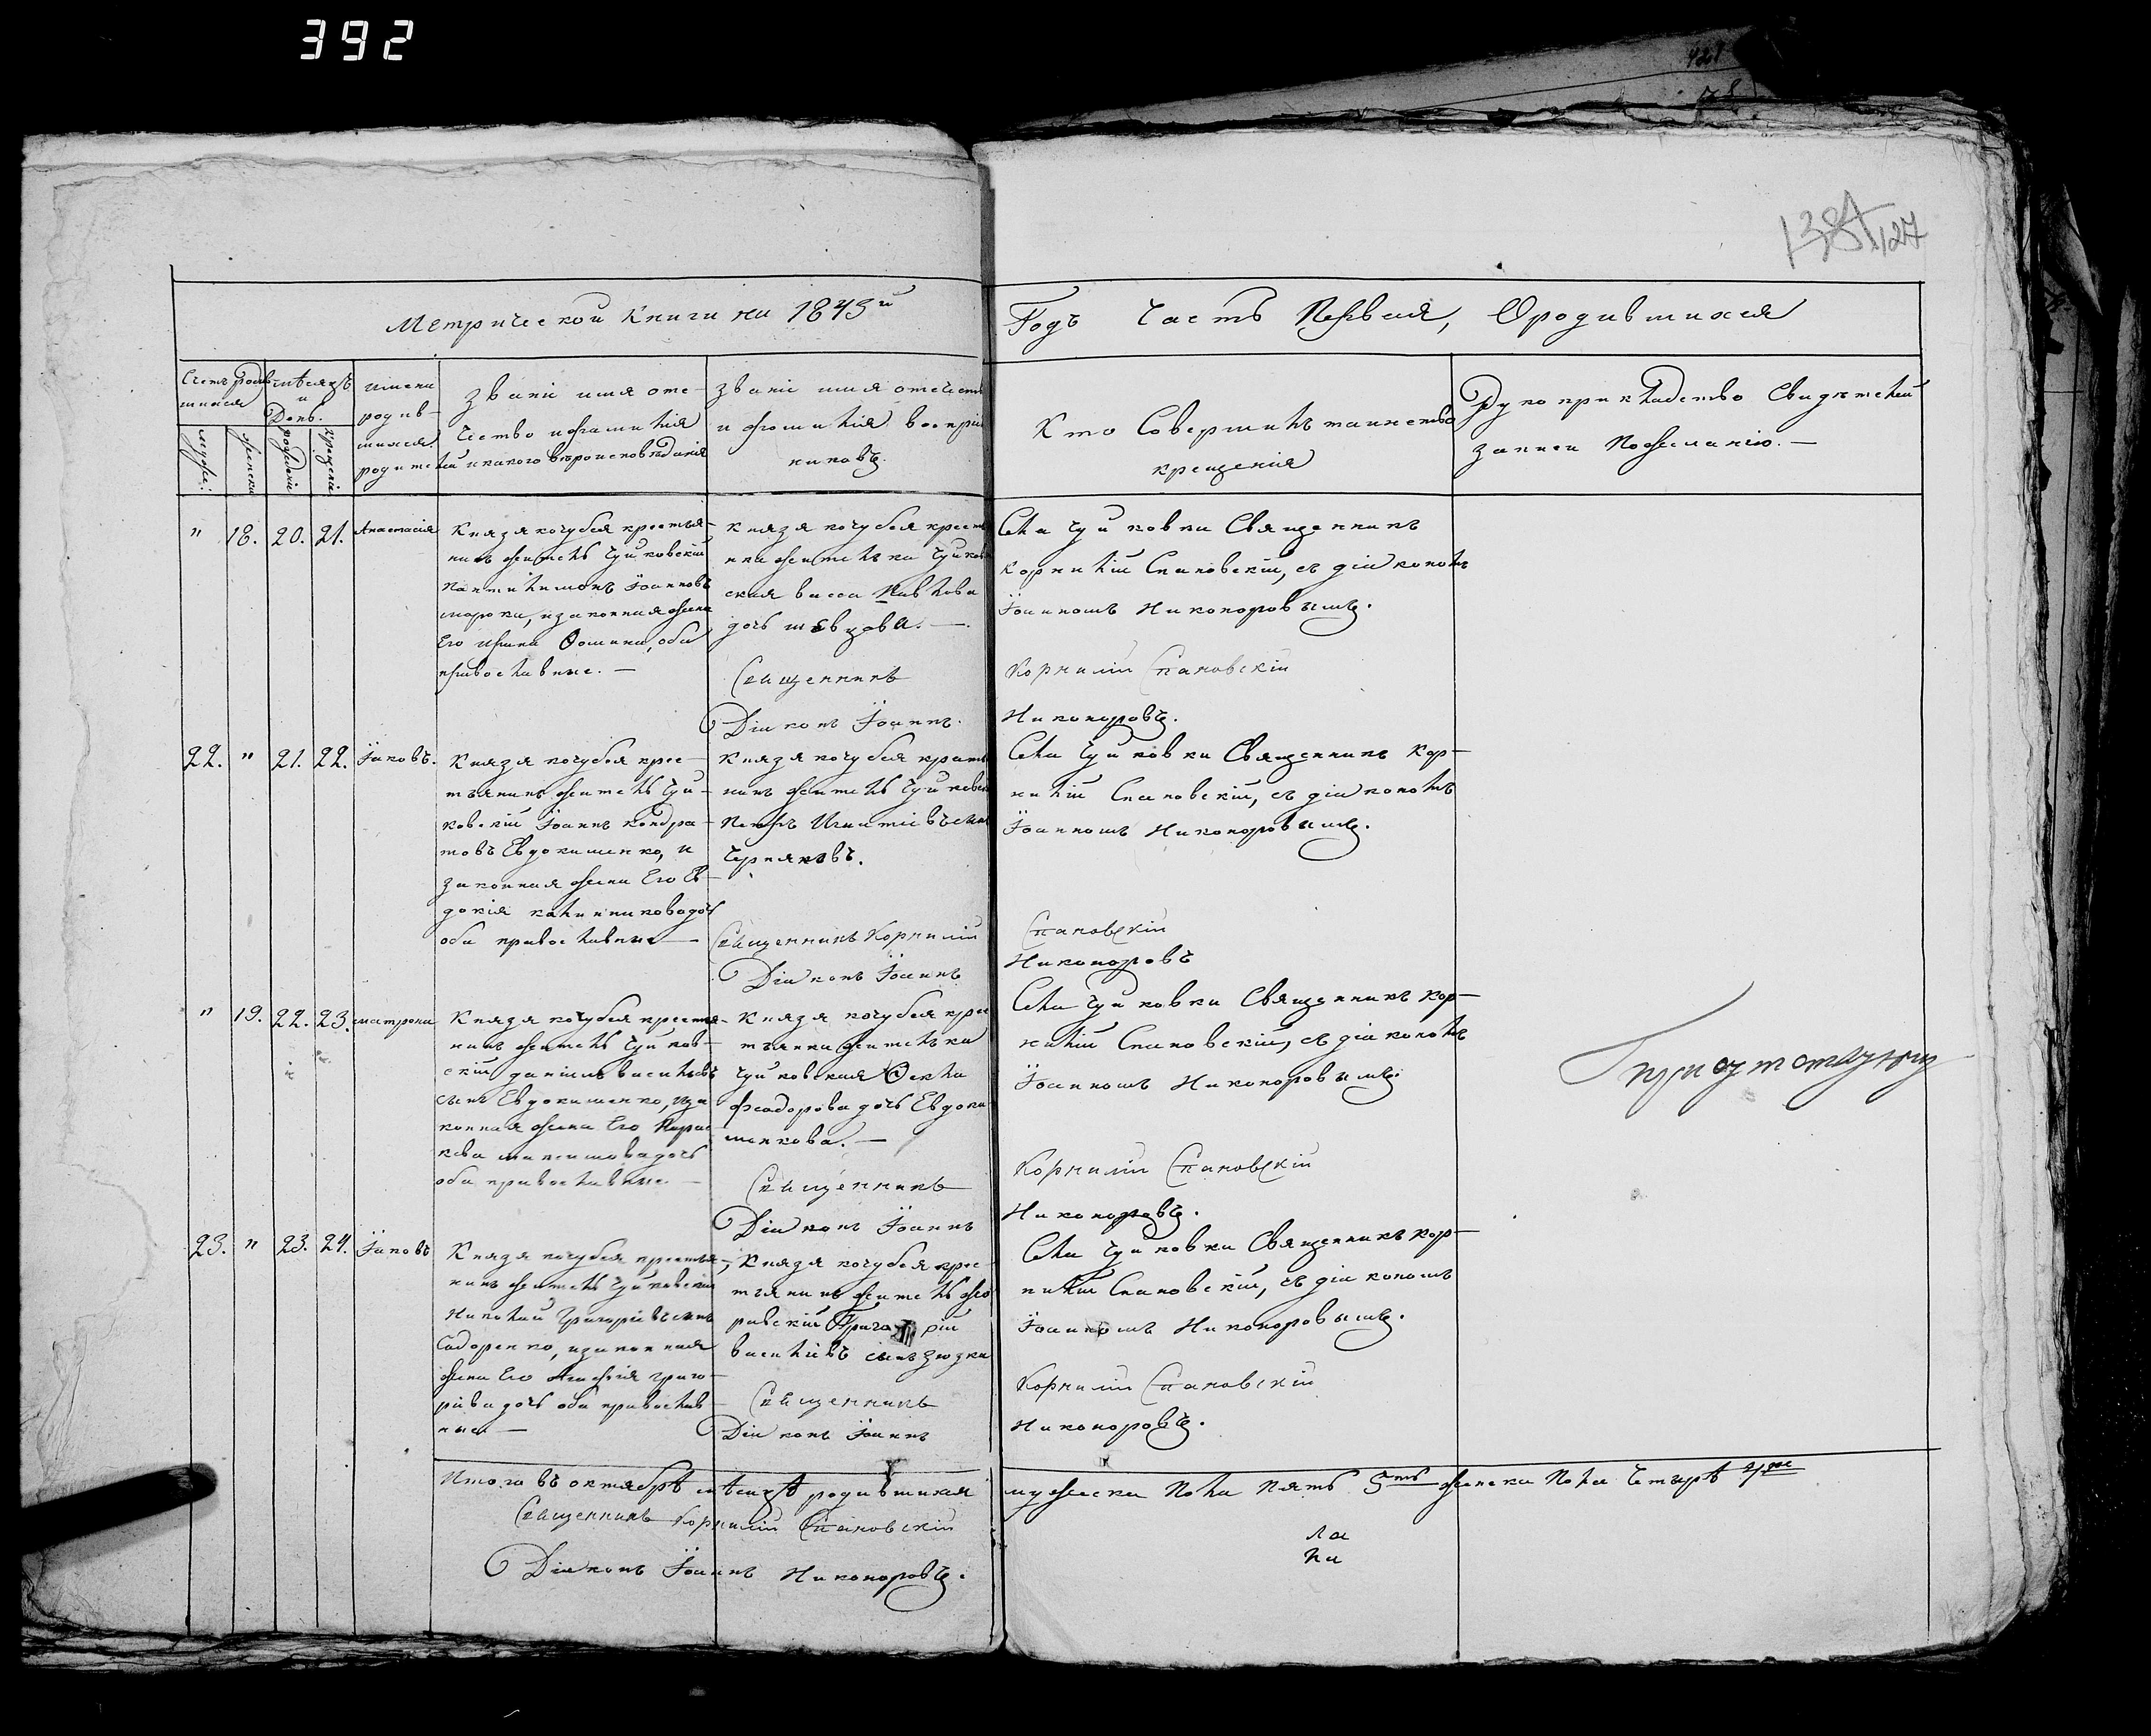 392
127
Метрической книги на 1843й
Годъ Часть Первая, О родившихся
Счетъ родившихся
Мѣсяцъ и День.
мужс: женска рожденія крещенія
имена родившихся
званіе имя отечество и фамилія родителей и какого вѣроисповѣданія
званіе имя отечество и фамилія воспріемниковъ.
Кто совершилъ таинство крещенія
Рукоприкладство свидѣтелей записи по желанію. —
" 18. 20. 21. Анастасія
Князя Кочубея крестья-
нинъ житель Чуйковскій
Пантилимонъ Іоанновъ
и законная жена
Его Ирина Фомина, оба
православные. —
Князя Кочубея крестья
нка жителька Чуйков
ская Васса Павлова
дочь Шевцова. —
Священникъ
Діаконъ Іоаннъ.
Села Чуйковки Священникъ
Корнилій Спановскій, съ діакономъ
Іоанномъ Никоноровымъ.
Корнилій Спановскій
Никоноровъ.
22. " 21. 22. Іаковъ.
Князя Кочубея крес-
тьянинъ житель Чуй-
ковскій Іоаннъ Кондра-
товъ Евдокименко, и
законная жена Его Ев-
докія Калинникова дочь
оба православные —
Князя Кочубея крестья
нинъ житель Чуйковскій
Петръ Игнатіевъ сынъ
Черняковъ.
Священникъ Корнилій
Діаконъ Іоаннъ
Села Чуйковки Священникъ Кор-
нилій Спановскій, съ діакономъ
Іоанномъ Никоноровымъ.
Спановскій
Никоноровъ
" 19. 22. 23. Матрона
Князя Кочубея крестья-
нинъ житель Чуйков-
скій Даніилъ Васильевъ
сынъ Евдокименко, и за
конная жена Его Парас
кева Максимова дочь
оба православные —
Князя Кочубея крес
тьянка жителька
Чуйковская Фекла
Феодорова дочь Евдоки
менкова. —
Священникъ
Діаконъ Іоаннъ
Села Чуйковки Священникъ Кор-
нилій Спановскій, съ діакономъ
Іоанномъ Никоноровымъ.
Корнилій Спановскій
Никоноровъ.
23. " 23. 24. Іаковъ
Князя Кочубея крестья-
нинъ житель Чуйковскій
Николай Григоріевъ сынъ
Сидоренко, и законная
жена Его Григо-
ріева дочь оба православ
ные. —
Князя Кочубея крес-
тьянинъ житель
Григорій
Васильевъ сынъ
Священникъ
Діаконъ Іоаннъ
Села Чуйковки Священникъ Кор-
нилій Спановскій, съ діакономъ
Іоанномъ Никоноровымъ.
Корнилій Спановскій
Никоноровъ.
Итого въ октябрѣ мѣсяцѣ родившихся мужеска пола пять 5ть женска пола четырѣ 4ре
Священникъ Корнилій Спановскій
Діаконъ Іоаннъ Никоноровъ.